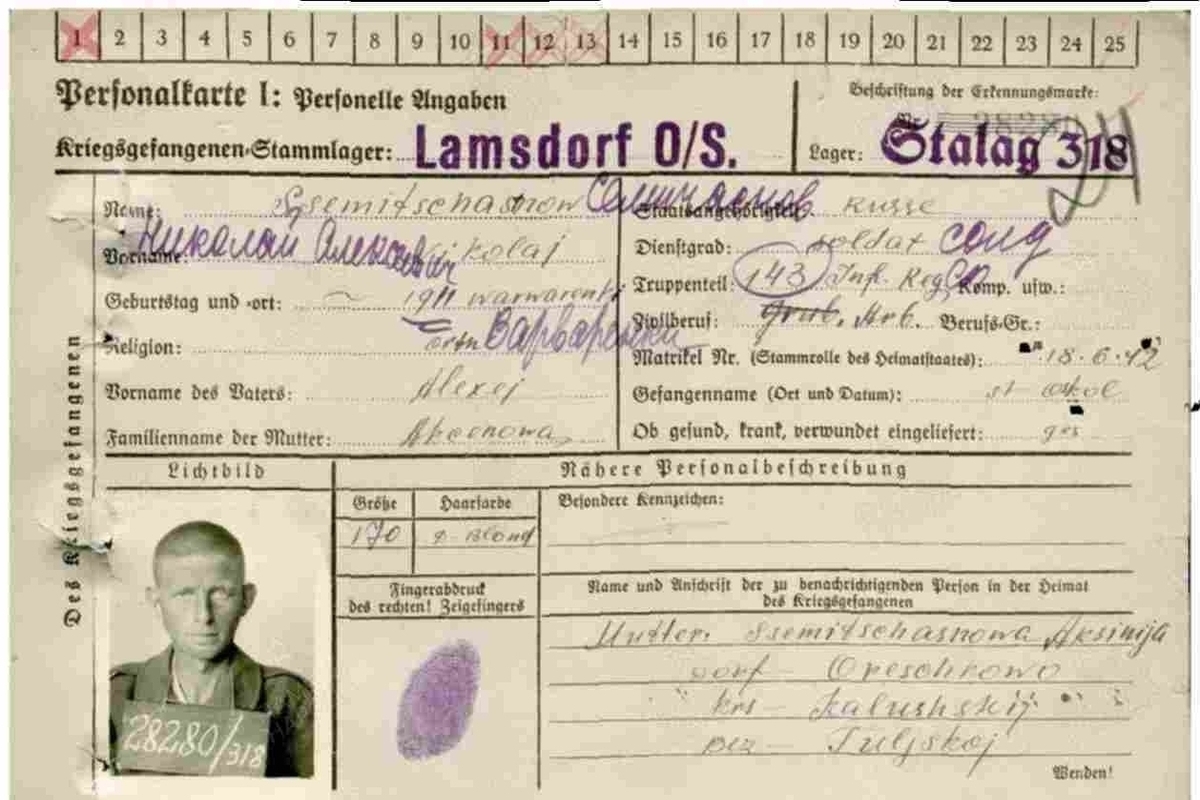 1 2 3 4 5 6 7 8 9 10 11 12 13 14 15 16 17 18 19 20 21 22 23 24 25
Personalkarte I: Personelle Angaben
Beschriftung der Erkennungsmarke:
Nr. 28280
Kriegsgefangenen-Stammlager: Lamsdorf O/S.
Lager: Stalag 318
Des Kriegsgefangenen
Name: Ssemitschasnow
Vorname: Николай Nikolaj
Geburtstag und -ort: 1911 warwarenki
Варваренки
Religion:
Vorname des Vaters: Alexej
Familienname der Mutter:
Staatsangehörigkeit: Russe
Dienstgrad: soldat солд
Truppenteil: 143 Inf. Reg. Komp. usw.:
Zivilberuf: Arb. Berufs-Gr.:
Matrikel Nr. (Stammrolle des Heimatstaates):
18.6.42
Gefangennahme (Ort und Datum): st oskol
Ob gesund, krank, verwundet eingeliefert: ges
Lichtbild
28280/318
Nähere Personalbeschreibung
Größe Haarfarbe
170 d. Blond
Fingerabdruck
des rechten! Zeigefingers
Besondere Kennzeichen:
Name und Anschrift der zu benachrichtigenden Person in der Heimat
des Kriegsgefangenen
Mutter: Ssemitschasnowa Aksinija
Dorf Oreschkowo
krs Kalushskij
Bez Tuljskoj
Wenden!